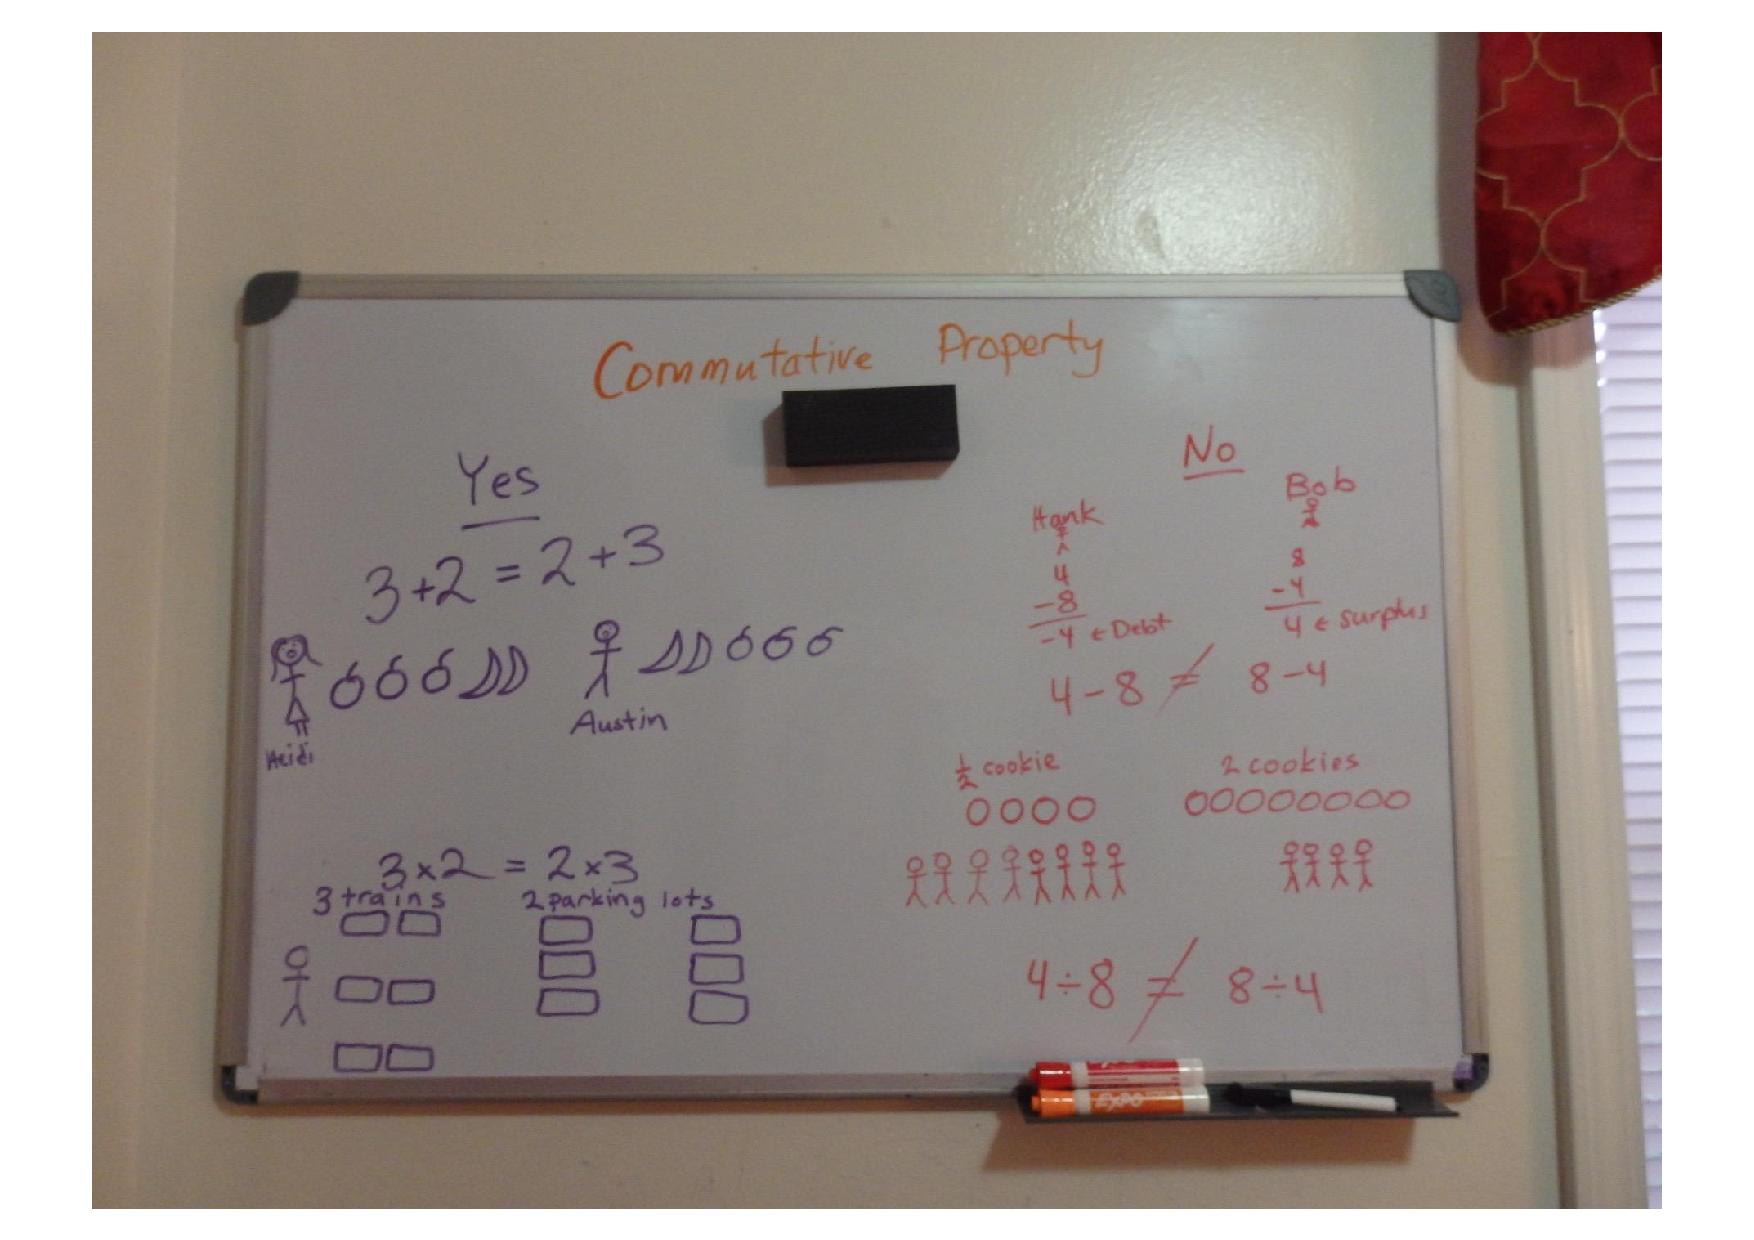 Commutative Property
Yes
3+2 = 2+3
Heidi
Austin
3×2 = 2×3
3 trains
2 parking lots
No
Hank
4
-8
-4 ← Debt
Bob
8
-4
4 ← surplus
4-8 ≠ 8-4
1/2 cookie
2 cookies
4÷8 ≠ 8÷4
EXPO